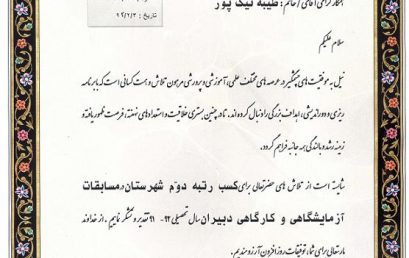 تاریخ : ۹۲/۲/۲
همکار گرامی آقای / خانم : طیبه نیک پور
سلام علیکم
نیل به موفقیت های چشمگیر در عرصه های مختلف علمی، آموزشی و پرورشی مرهون تلاش و همت کسانی است که با برنامه
ریزی و دوراندیشی، اهداف بزرگی را دنبال کرده اند. تا در چنین بستری خلاقیت و استعدادهای نهفته، فرصت ظهور یافته و
زمینه رشد و بالندگی همه جانبه فراهم گردد.
شایسته است از تلاش های حضرتعالی برای کسب رتبه دوّم شهرستان در مسابقات
آزمایشگاهی و کارگاهی دبیران سال تحصیلی ۹۲-۹۱ تقدیر و تشکر نماییم. از خداوند
متعال برای شما، توفیقات روز افزون آرزومندیم.